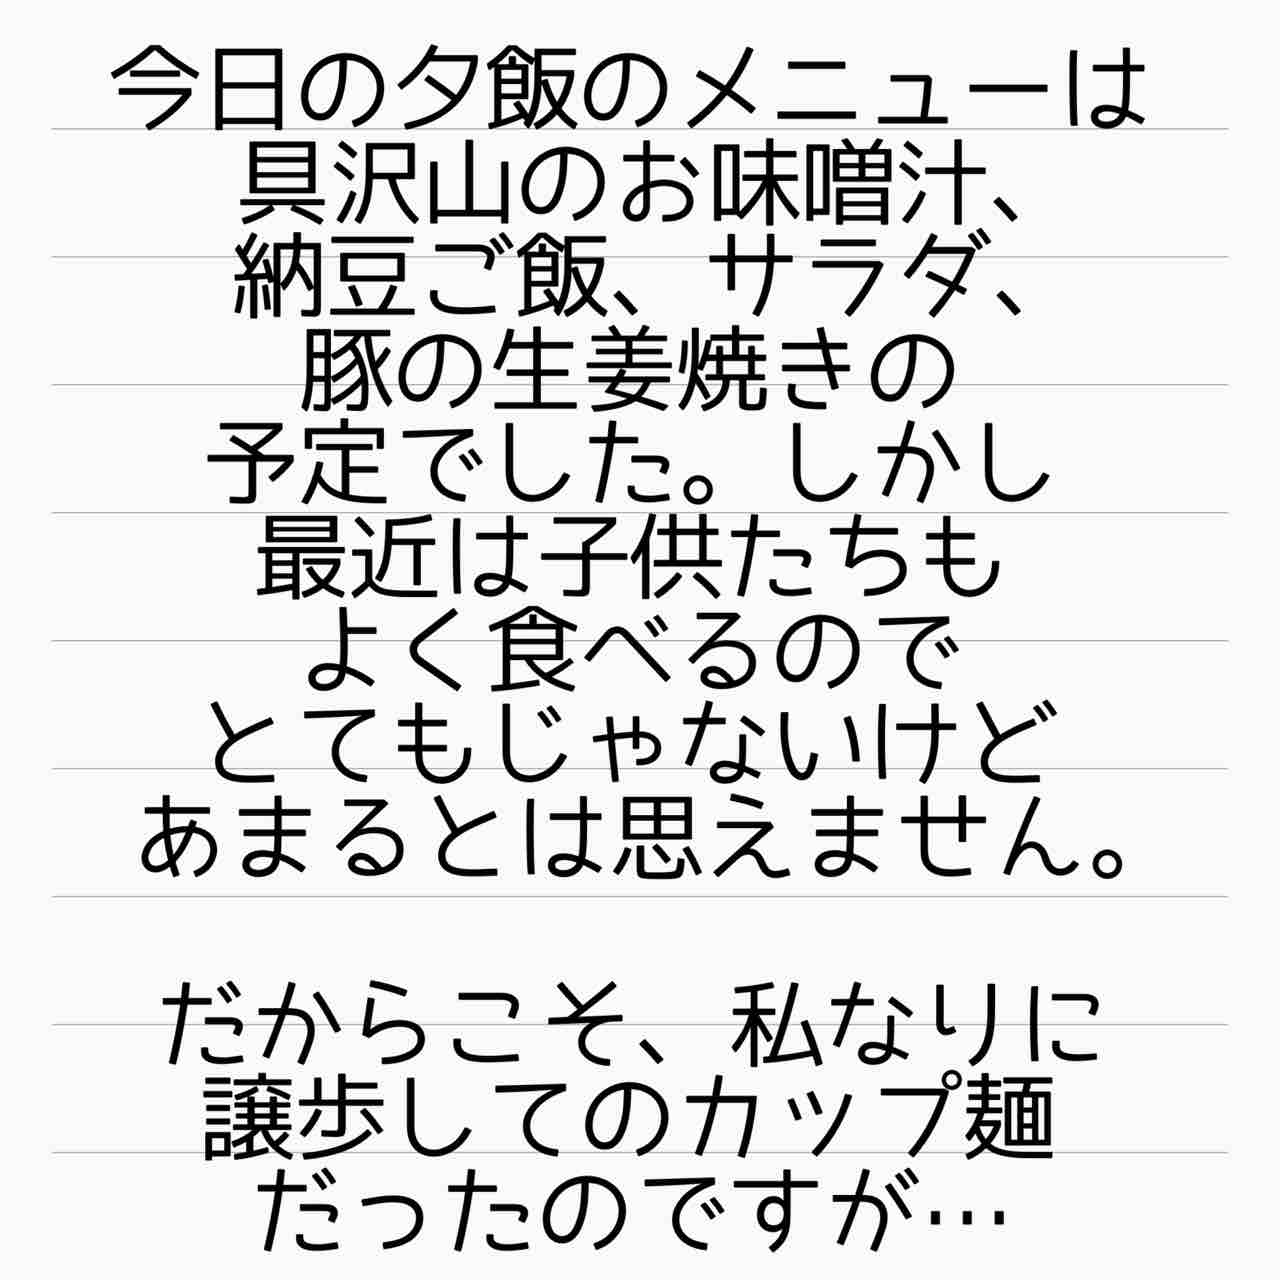 今日の夕飯のメニューは
具沢山のお味噌汁、
納豆ご飯、サラダ、
豚の生姜焼きの
予定でした。しかし
最近は子供たちも
よく食べるので
とてもじゃないけど
あまるとは思えません。
だからこそ、私なりに
譲歩してのカップ麺
だったのですが…